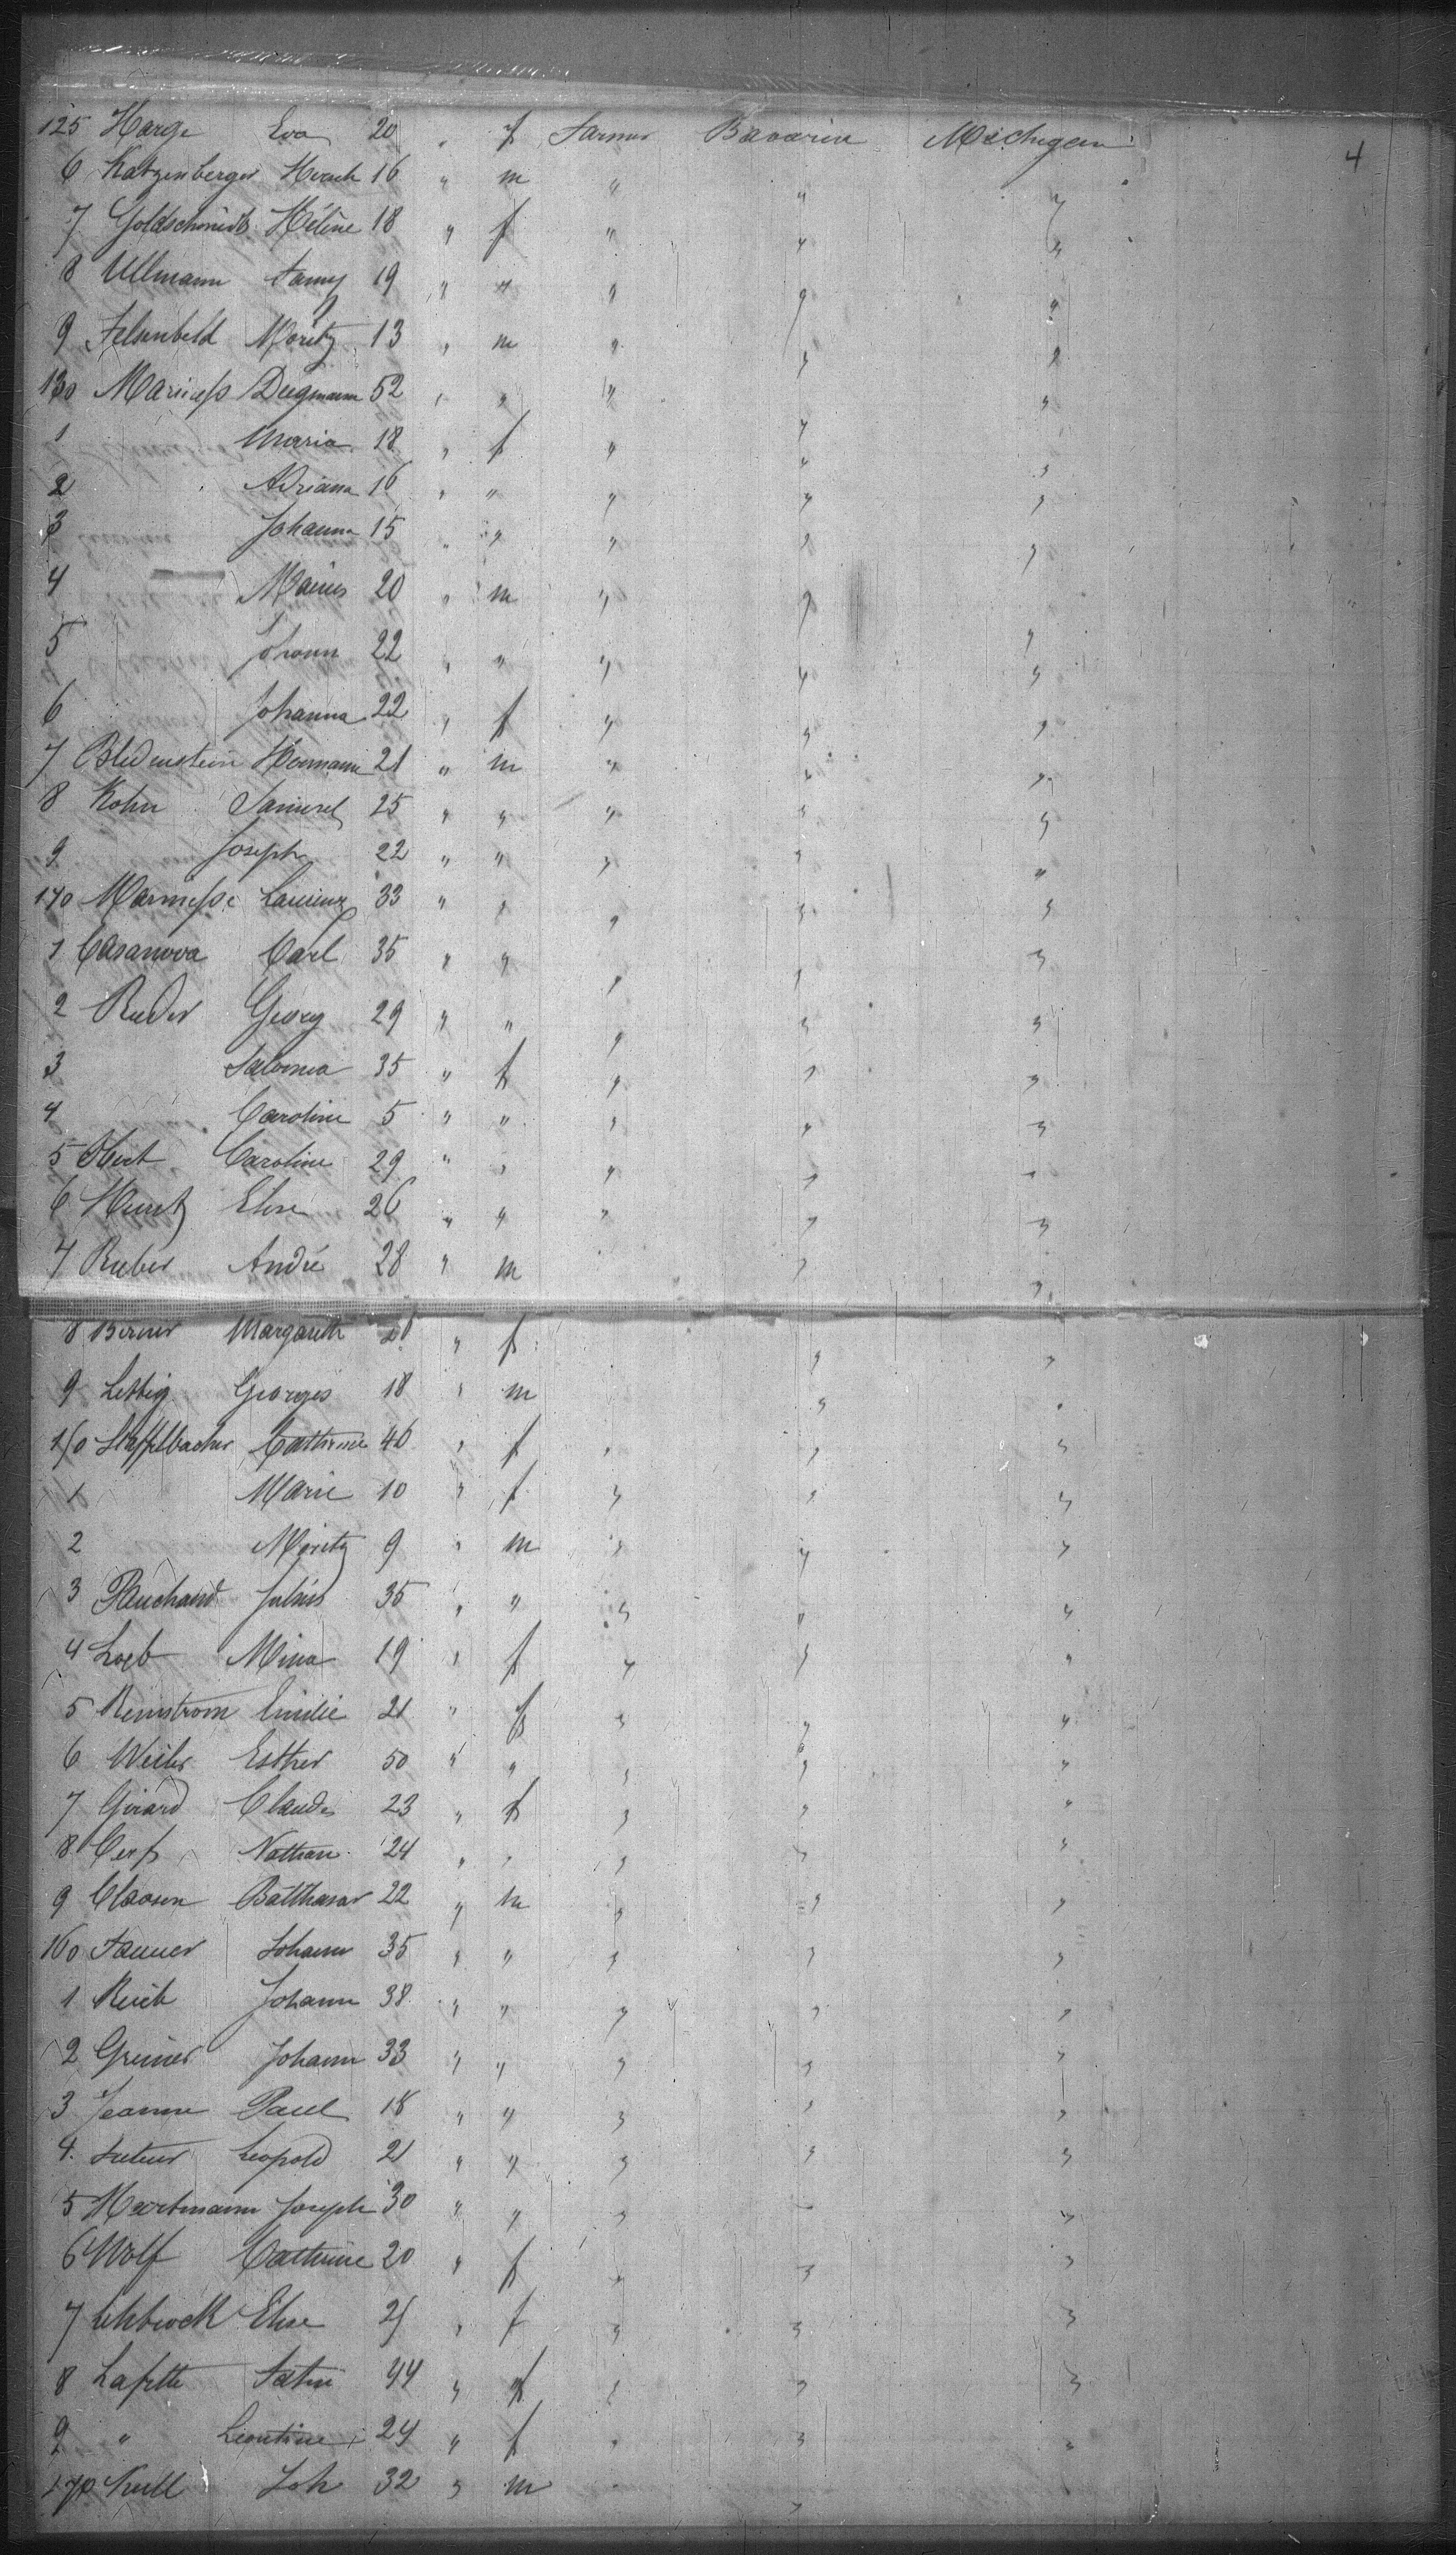 4
125 Harge Eva 20 " f Farmer Bavaria Michigan
6 Katzenberger Hirsch 16 " m " " "
7 Goldschmidt Hélène 18 " f " " "
8 Ullmann Fanny 19 " " " " "
9 Felsenheld Moritz 13 " m " " "
130 Dregmann 52 " " " " "
1 Maria 18 " f " " "
2 Adriana 16 " " " " "
3 Johanna 15 " " " " "
4 Marius 20 " m " " "
5 Johann 22 " " " " "
6 Johanna 22 " f " " "
7 Bledenstein Hermann 21 " m " " "
8 Kohn Samuel 25 " " " " "
9 Joseph 22 " " " " "
140 Laurenz 33 " " " " "
1 Casanova Carl 35 " " " " "
2 Rieder Georg 29 " " " " "
3 Salomea 35 " f " " "
4 Caroline 5 " " " " "
5 Caroline 29 " " " " "
6 Elise 26 " " " " "
7 Rieber André 28 " m " "
8 Margareth " f " "
9 Lettig Georges 18 " m " "
150 Staffelbacher Catherine 46 " f " " "
1 Marie 10 " f " " "
2 Moritz 9 " m " " "
3 Julius 35 " " " " "
4 Loeb Mina 19 " f " " "
5 Remstrom Emilie 21 " f " " "
6 Weiler Esther 50 " " " " "
7 Girard Claude 23 " f " " "
8 Cerf Nathan 24 " " " " "
9 Claosen Balthasar 22 " m " " "
160 Johann 35 " " " " "
1 Johann 38 " " " " "
2 Greiner Johann 33 " " " " "
3 Jeanne Paul 18 " " " " "
4 Leopold 21 " " " " "
5 Hartmann Joseph 30 " " " " "
6 Wolf Catherine 20 " f " " "
7 Lehbrock Elise " f " " "
8 Lafette 44 " f " " "
9 " Leontine 24 " f " " "
170 Joh 32 " m " "